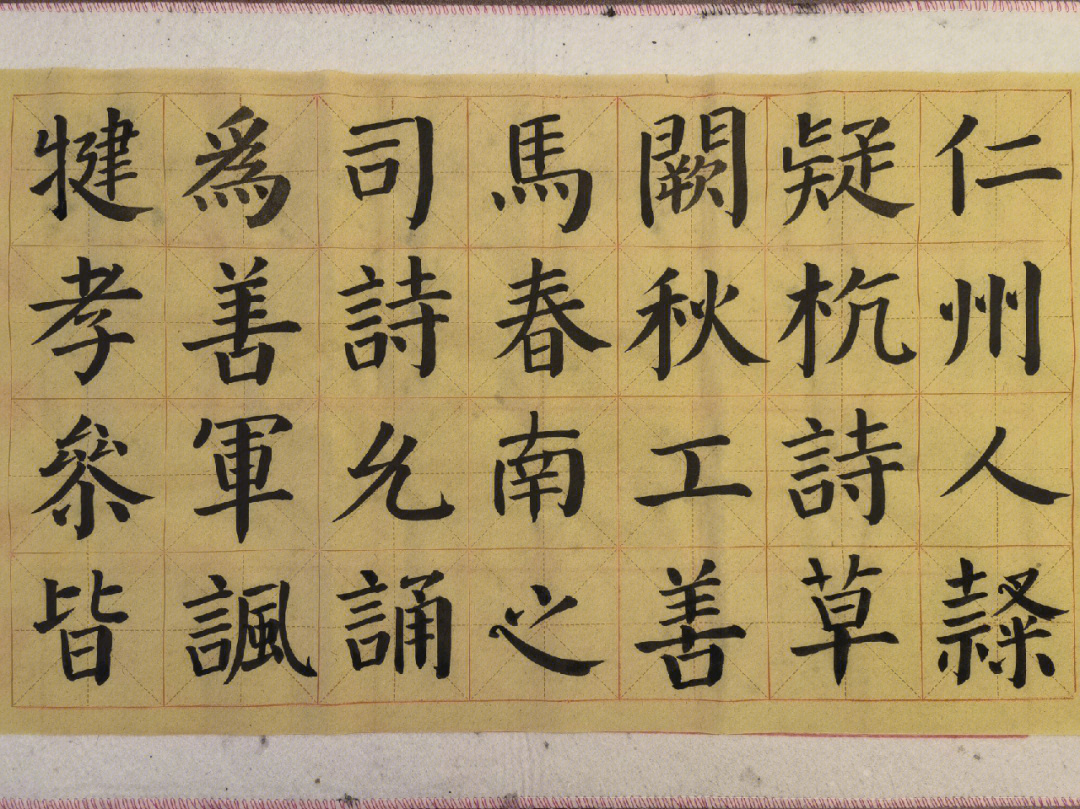 犍爲司馬闕疑仁
孝善詩春秋杭州
參軍允南工詩人
皆諷誦之善草隸